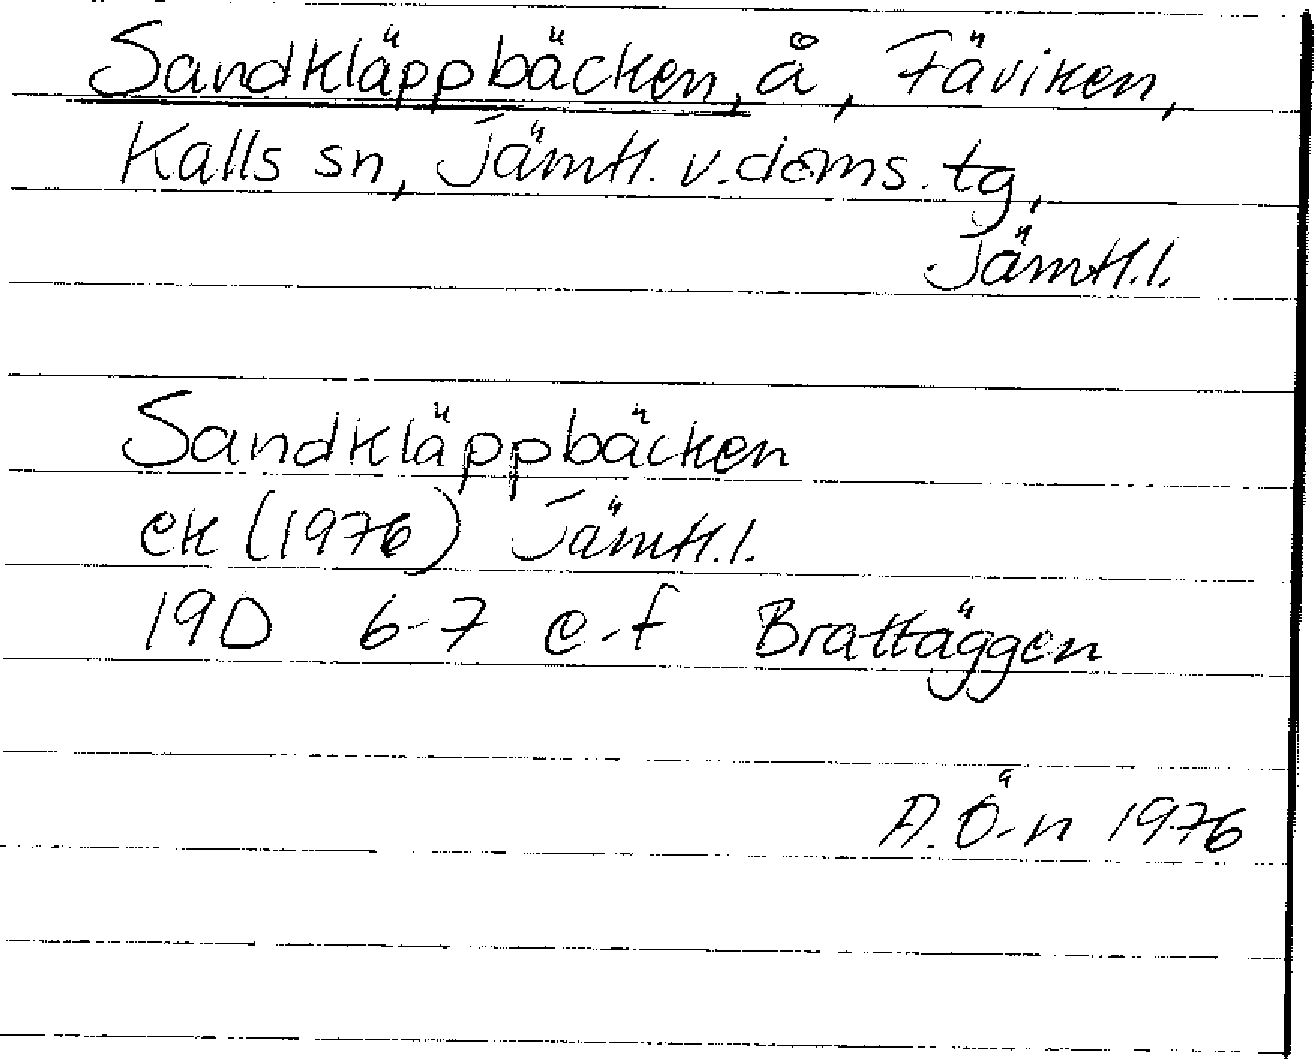 Sandkläppbäcken, å, Fäviken,
Kalls sn, Jämtl. v. doms. tg,
Jämtl.l.
Sandkläppbäcken
ek (1976) Jämtl.l.
19D 6-7 e-f Brattäggen
A. Ö-n 1976